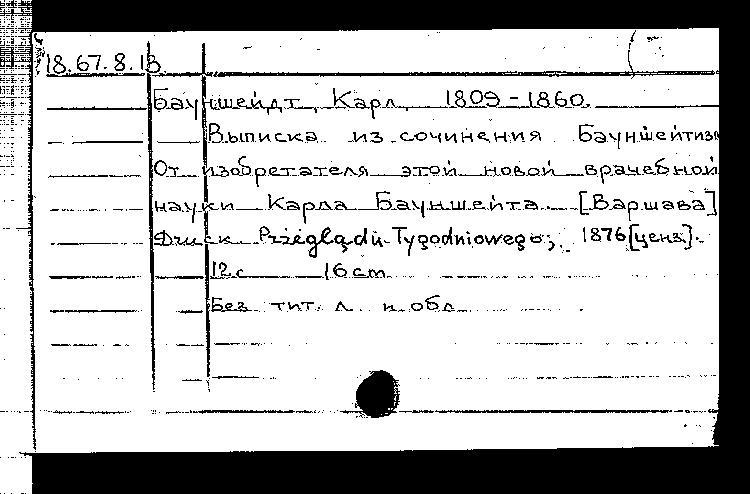 18.67.8.13
Бауншейдт, Карл, 1809-1860.
Выписка из сочинения Бауншейтизм
От изобретателя этой новой врачебной
науки Карла Бауншейта. [Варшава]
Друк Przeglądu Tygodniowego, 1876 [ценз].
12 с 16 cm
Без тит. л. и обл